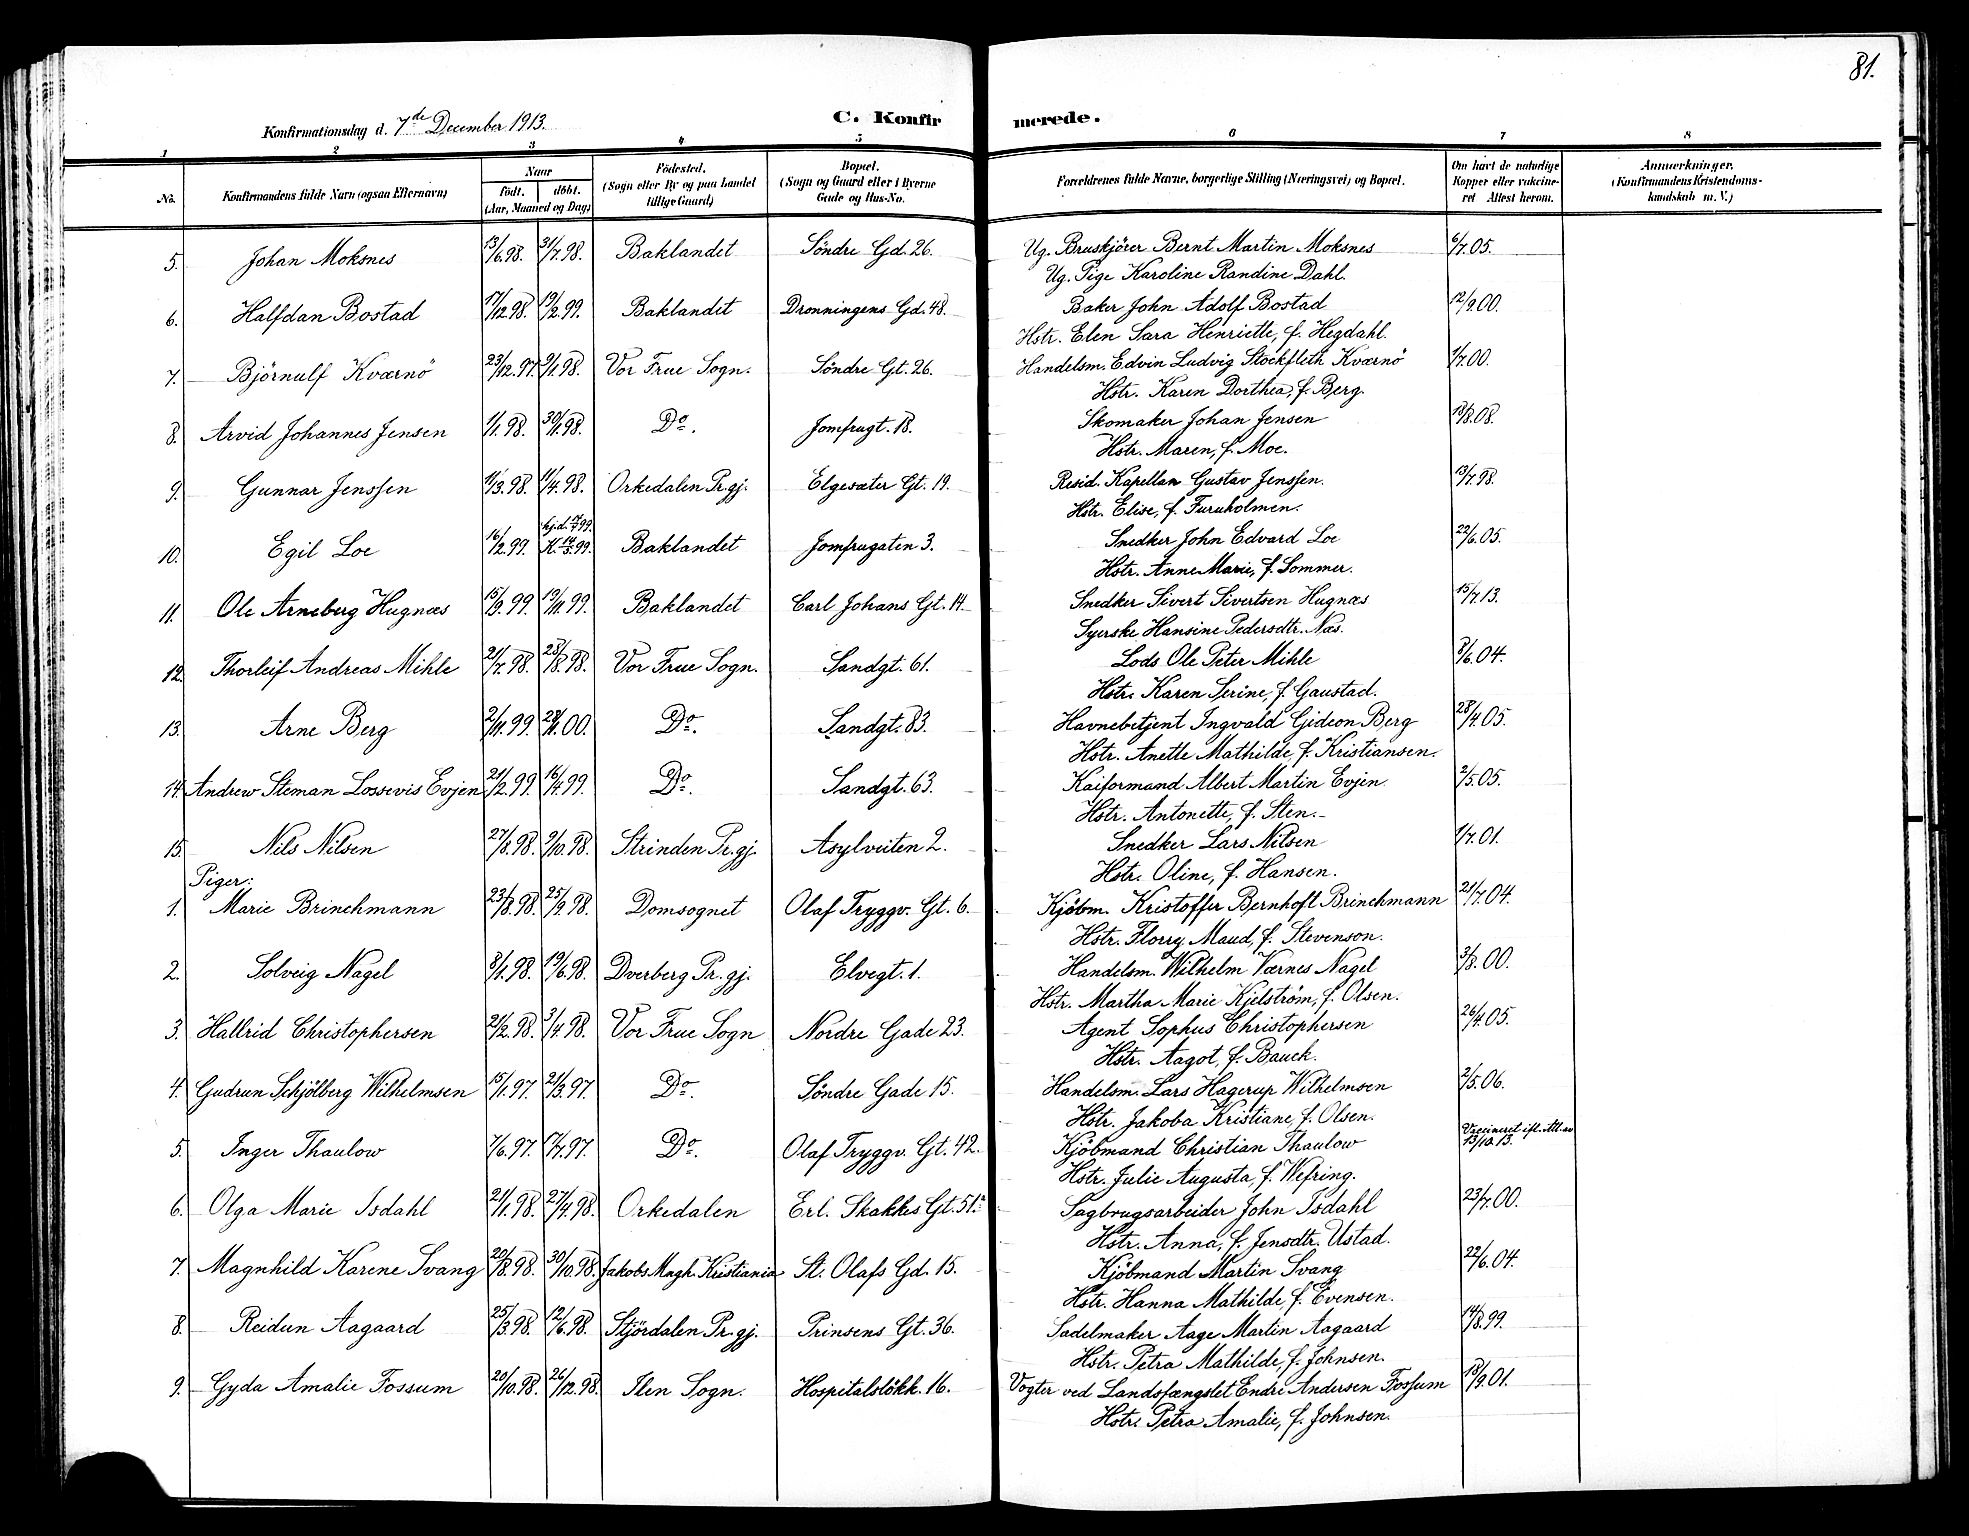 81.
Konfirmationsdag d. 7de December 1913. C. Konfirmerede.
1 2 3 4 5 6 7 8
No. Konfirmandens fulde Navn (ogsaa Efternavn) Naar født. døbt. (Aar, Maaned og Dag) Fødested. (Sogn eller By og paa Landet tillige Gaard) Bopæl. (Sogn og Gaard eller i Byerne Gade og Hus-No. Forældrenes fulde Navne, borgerlige Stilling (Næringsvei) og Bopæl. Om havt de naturlige Kopper eller vaccineret Attest herom. Anmærkninger. (Konfirmandens Kristendomskundskab m. V.)
5. Johan Moksnes 13/6.98. 31/7.98. Baklandet Søndre Gd. 26. Ug. Bruskjører Bernt Martin Moksnes 6/7.05.
Ug. Pige Karoline Randine Dahl.
6. Halfdan Bostad 17/12.98. 19/2.99. Baklandet Dronningens Gd. 48. Baker John Adolf Bostad 12/9.00.
Hstr. Elen Sara Henriette, f. Hegdahl.
7. Bjørnulf Kværnø 23/12.97. 9/1.98. Vor Frue Sogn. Søndre Gt. 26. Handelsm. Edvin Ludvig Stockfleth Kværnø 1/7.00.
Hstr. Karen Dorthea, f. Berg.
8. Arvid Johannes Jensen 1/1.98. 30/1.98. Do. Jomfrugt. 18. Skomaker Johan Jensen 18/8.08.
Hstr. Maren, f. Moe.
9. Gunnar Jenssen 11/3.98. 11/4.98. Orkedalen Pr.gj. Elgesæter Gt. 19. Resid. Kapellan Gustav Jenssen. 13/7.98.
Hstr. Elise, f. Furuholmen.
10. Egil Loe 16/2.99. hj.d. 7/4 99. K. 14/5.99. Baklandet Jomfrugaten 3. Snedker John Edvard Loe 22/6.05.
Hstr. Anne Marie, f. Sommer.
11. Ole Arneberg Hugnæs 15/9.99. 19/11.99. Baklandet Carl Johans Gt. 14 Snedker Sivert Sivertsen Hugnæs 15/7.13.
Syerske Hansine Pedersdtr. Næs.
12. Thorleif Andreas Mihle 21/7.98. 28/8.98. Vor Frue Sogn. Sandgt. 61. Lods Ole Peter Mihle 8/6.04.
Hstr. Karen Serine, f. Gaustad.
13. Arne Berg 2/11.99. 28/1.00. Do. Sandgt. 83. Havnebetjent Ingvald Gideon Berg 28/4.05.
Hstr. Anette Mathilde, f. Kristiansen.
14. Andrew Steman Lossevis Evjen 21/2.99. 16/4.99. Do. Sandgt. 63. Kaiformand Albert Martin Evjen. 2/5.05.
Hstr. Antonette, f. Sten.
15. Nils Nilsen 27/8.98. 9/10.98. Strinden Pr.gj. Asylveiten 2. Snedker Lars Nilsen 1/7.01.
Hstr. Oline, f. Hansen.
Piger:
1. Marie Brinchmann 23/8.98. 25/9.98. Domsognet Olaf Tryggv. Gt. 6. Kjøbm. Kristoffer Bernhoft Brinchmann 21/7.04.
Hstr. Florry Maud, f. Stevenson.
2. Solveig Nagel 8/1.98. 19/6.98. Dverberg Pr.gj. Elvegt. 1. Handelsm. Wilhelm Værnes Nagel 3/8.00.
Hstr. Martha Marie Kjelstrøm, f. Olsen.
3. Hallrid Christophersen 21/2.98. 3/4.98. Vor Frue Sogn Nordre Gade 23. Agent Sophus Christophersen 26/4.05.
Hstr. Aagot, f. Bauck.
4. Gudrun Schjølberg Wilhelmsen 15/1.97. 21/3.97. Do. Søndre Gade 15. Handelsm. Lars Hagerup Wilhelmsen 2/5.06.
Hstr. Jakoba Kristiane, f. Olsen.
5. Inger Thaulow 7/6.97. 17/7.97. Do. Olaf Tryggv. Gt. 42. Kjøbmand Christian Thaulow Vaccineret ifl. Att. av 13/10.13.
Hstr. Julie Augusta, f. Wefring.
6. Olga Marie Isdahl 21/1.98. 27/4.98. Orkedalen Erl. Skakkes Gt. 51.a Sagbrugsarbeider John Isdahl 23/7.00.
Hstr. Anna, f. Jensdtr. Ustad.
7. Magnhild Karene Svang 20/8.98. 30/10.98. Jakobs Mngh. Kristiania St. Olafs Gd. 15. Kjøbmand Martin Svang 22/6.04.
Hstr. Hanna Mathilde, f. Evensen.
8. Reidun Aagaard 25/3.98. 12/6.98. Stjørdalen Pr.gj. Prinsens Gt. 36. Sadelmaker Aage Martin Aagaard 14/8.99.
Hstr. Petra Mathilde, f. Johnsen.
9. Gyda Amalie Fossum 20/10.98. 26/12.98. Ilen Sogn. Hospitalsløkk. 16. Vogter ved Landsfængslet Endre Andersen Fossum 18/9.01.
Hstr. Petra Amalie, f. Johnsen.